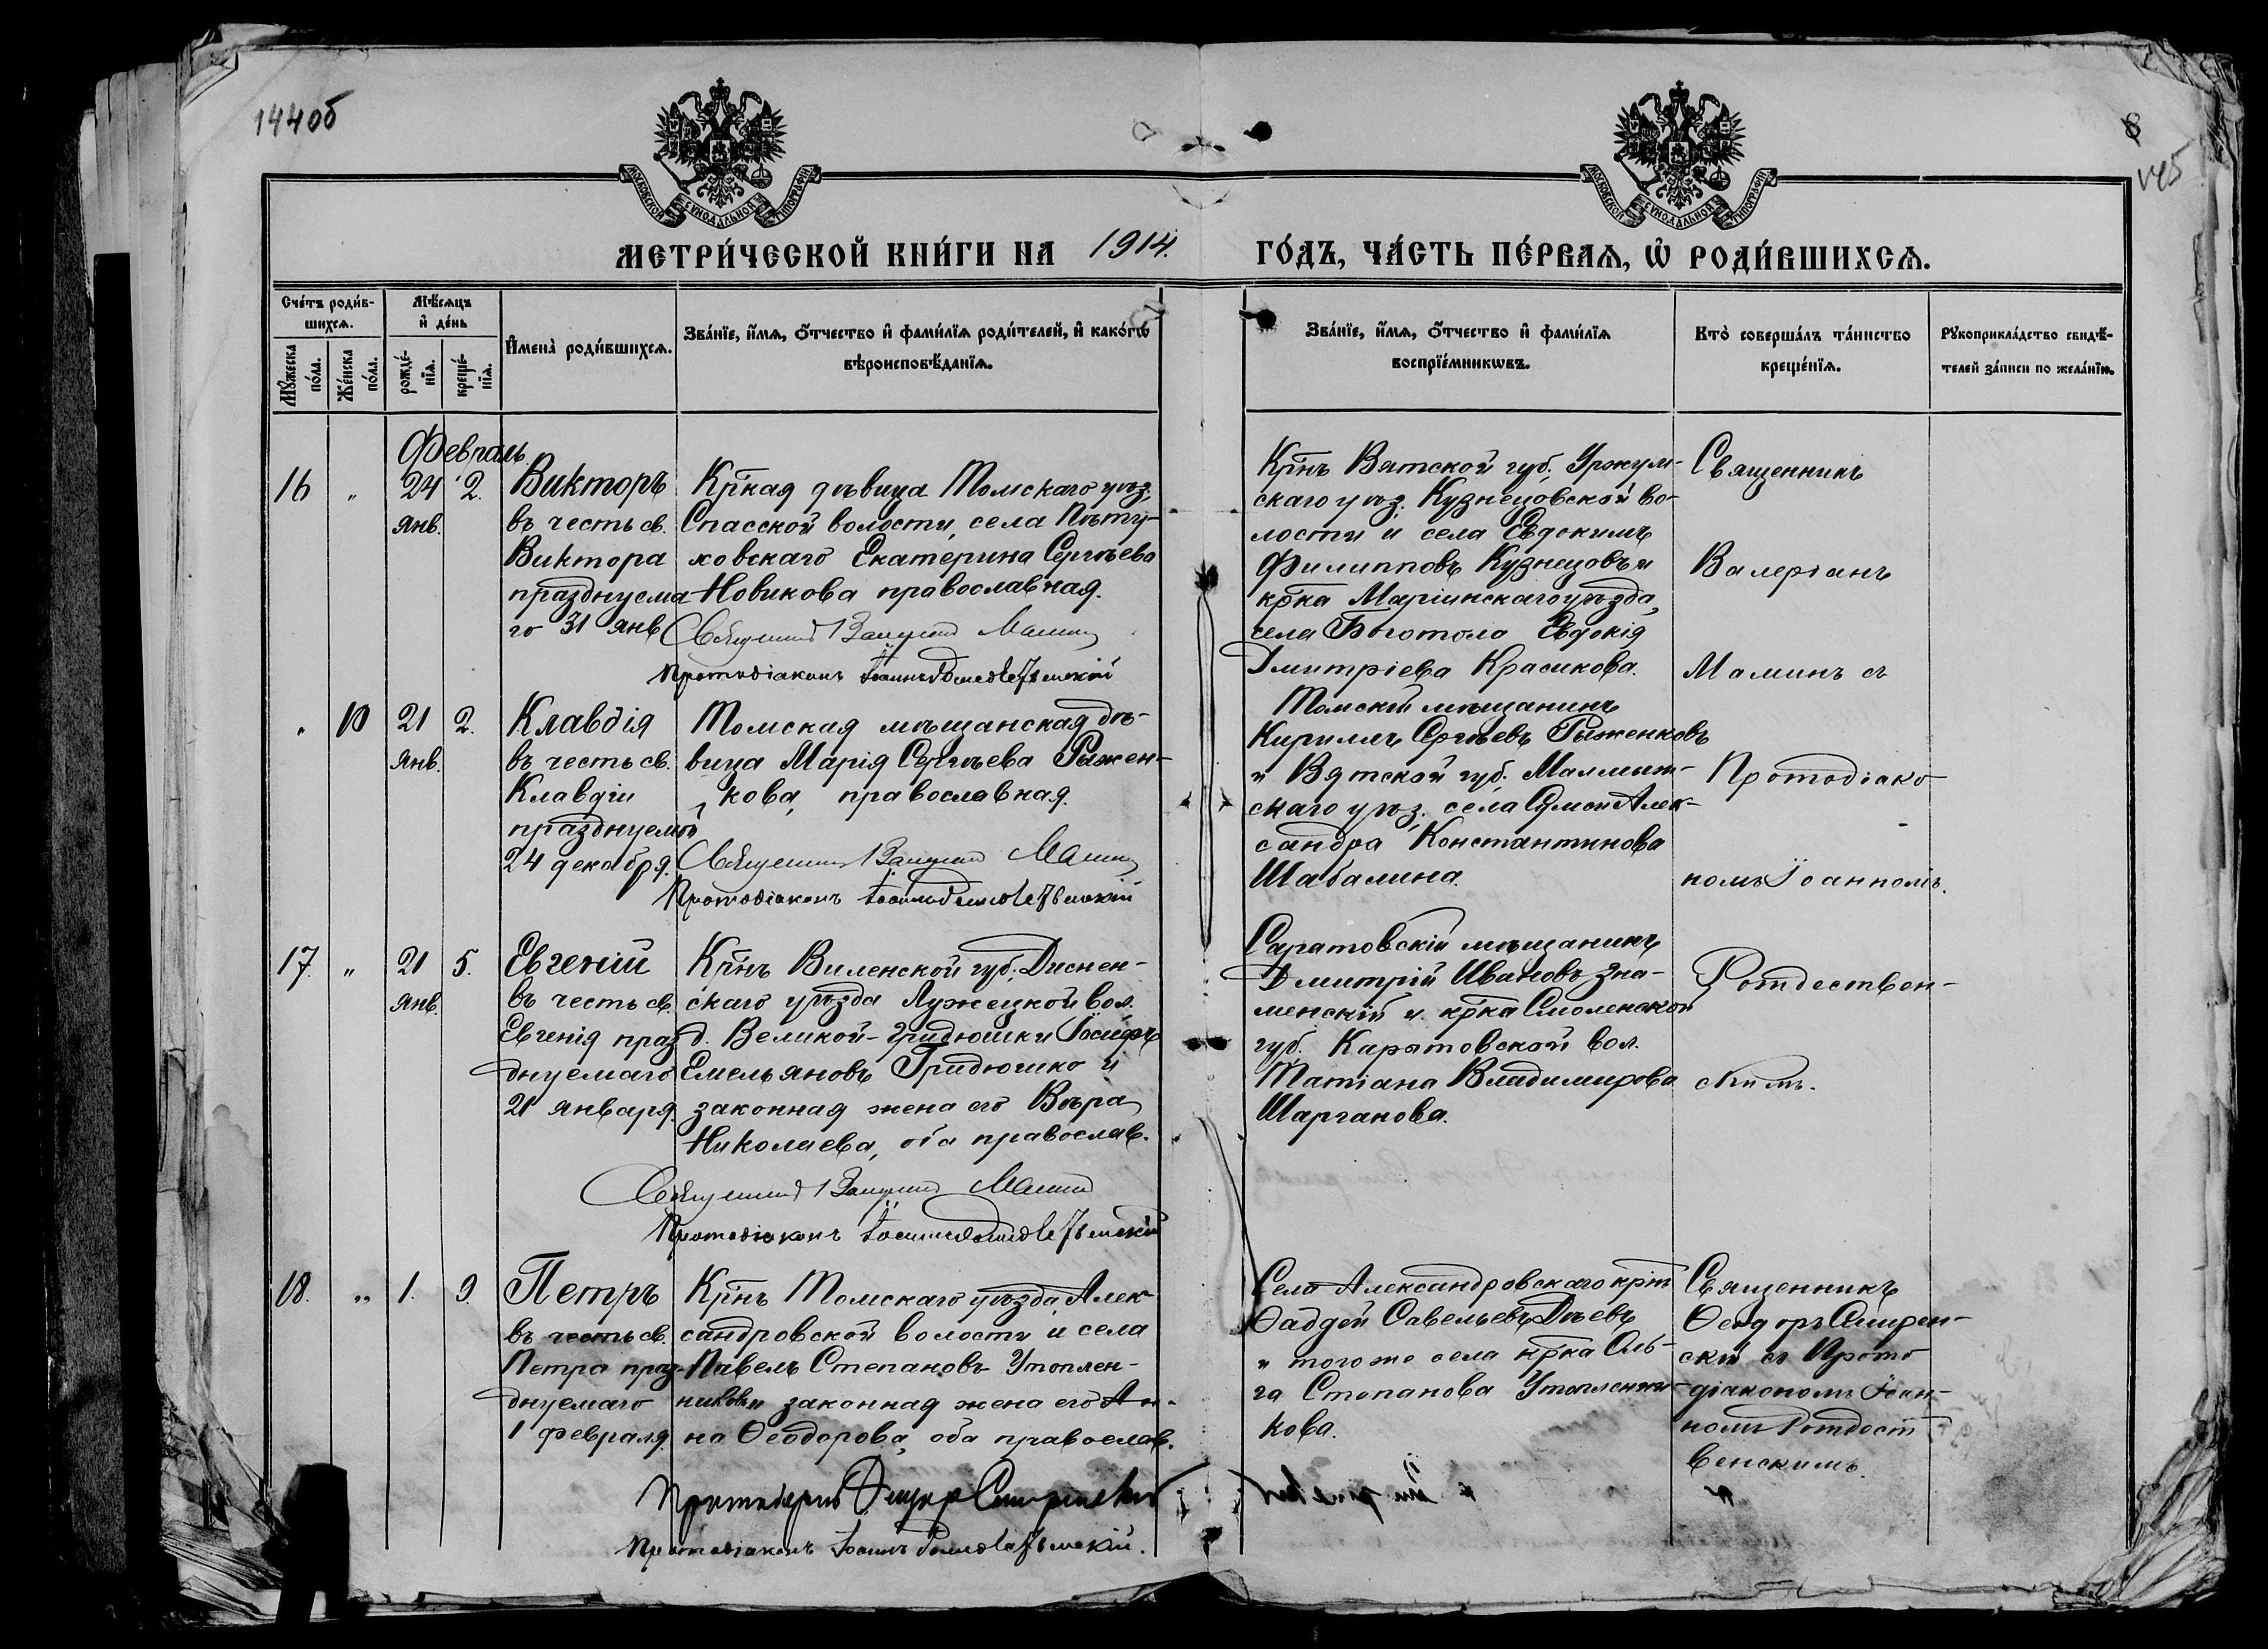 144об
8
145
МОСКОВСКОЙ СУНОДАЛЬНОЙ ТИПОГРАФІИ
МОСКОВСКОЙ СУНОДАЛЬНОЙ ТИПОГРАФІИ
МЕТРИ́ЧЕСКОЙ КНИ́ГИ НА 1914. ГО́ДЪ, ЧА́СТЬ ПЕ́РВАѦ, Ѡ҆ РОДИ́ВШИХСѦ.
Сче́тъ роди́в-
шихсѧ.
Мꙋ́жеска по́ла.
Же́нска по́ла.
Мѣ́сѧцъ
и҆ де́нь
рожде́-нїѧ.
креще́-нїѧ.
И҆мена̀ роди́вшихсѧ.
Зва́нїе, и҆́мѧ, ѻ҆́тчество и҆ фами́лїѧ роди́телей, и҆ како́гѡ
вѣроисповѣ́данїѧ.
Зва́нїе, и҆́мѧ, ѻ҆́тчество и҆ фами́лїѧ
воспрїе́мникѡвъ.
Кто̀ соверша́лъ та́инство
креще́нїѧ.
Рꙋкоприкла́дство свидѣ́-
телей за́писи по жела́нїю.
Февраль
16 „ 24 2.
янв.
Викторъ
въ честь св.
Виктора
празднуема
го 31 янв
Крнкая дѣвица Томскаго уѣз.
Спасской волости, села Пѣту-
ховскаго Екатерина Сергѣева
Новикова православная.
Священник Маминъ
Протодіаконъ Іоаннъ Рождественскій
Крнъ Вятской губ. Уржум-
скаго уѣз. Кузнецовской во-
лости и села Евдокимъ
Филипповъ Кузнецовъ и
крка Маріинскаго уѣзда,
села Боготола Евдокія
Дмитріева Красикова.
Священникъ
Валеріанъ
Маминъ съ
„ 10 21 2.
янв.
Клавдія
въ честь св.
Клавдіи
празднуемой
24 декабря.
Томская мѣщанская дѣ-
вица Марія Сергѣева Рыжен-
кова, православная.
Священник Маминъ
Протодіаконъ Іоаннъ Рождественскій
Томскій мѣщанинъ
Кириллъ Сергѣевъ Рыженковъ
и Вятской губ. Малмыж-
скаго уѣз. села Сямси Алек-
сандра Константинова
Шабалина.
Протодіако
номъ Іоанномъ.
17. „ 21 5.
янв.
Евгеній
въ честь св.
Евгенія праз
днуемаго
21 января.
Крнъ Виленской губ. Диснен-
скаго уѣзда Лужецкой вол.
д. Великой-Гридюшки Іосифъ
Емельяновъ Гридюшко и
законная жена его Вѣра
Николаева, оба православ.
Священник Маминъ
Протодіаконъ Іоаннъ Рождественскій
Саратовскій мѣщанинъ
Дмитрій Ивановъ Зна-
менскій и крка Смоленской
губ. Каратовской вол.
Татіана Владимирова
Шарганова.
Рождествен-
скимъ.
18. „ 1. 9.
Петръ
въ честь св.
Петра праз-
днуемаго
1 февраля.
Крнъ Томскаго уѣзда, Алек
сандровской волости и села
Павелъ Степановъ Утоплен-
никовъ и законная жена его Ан-
на Ѳеодорова, оба православ.
Протоіерей Ѳеодоръ Смиренскій
Протодіаконъ Іоаннъ Рождественскій.
Села Александровскаго крнъ
Ѳаддей Савельевъ Дѣевъ
и того же села крка Оль-
га Степанова Утопленни-
кова.
Священникъ
Ѳеодоръ Смирен-
скій съ Прото
діакономъ Іоан-
номъ Рождест
венскимъ.